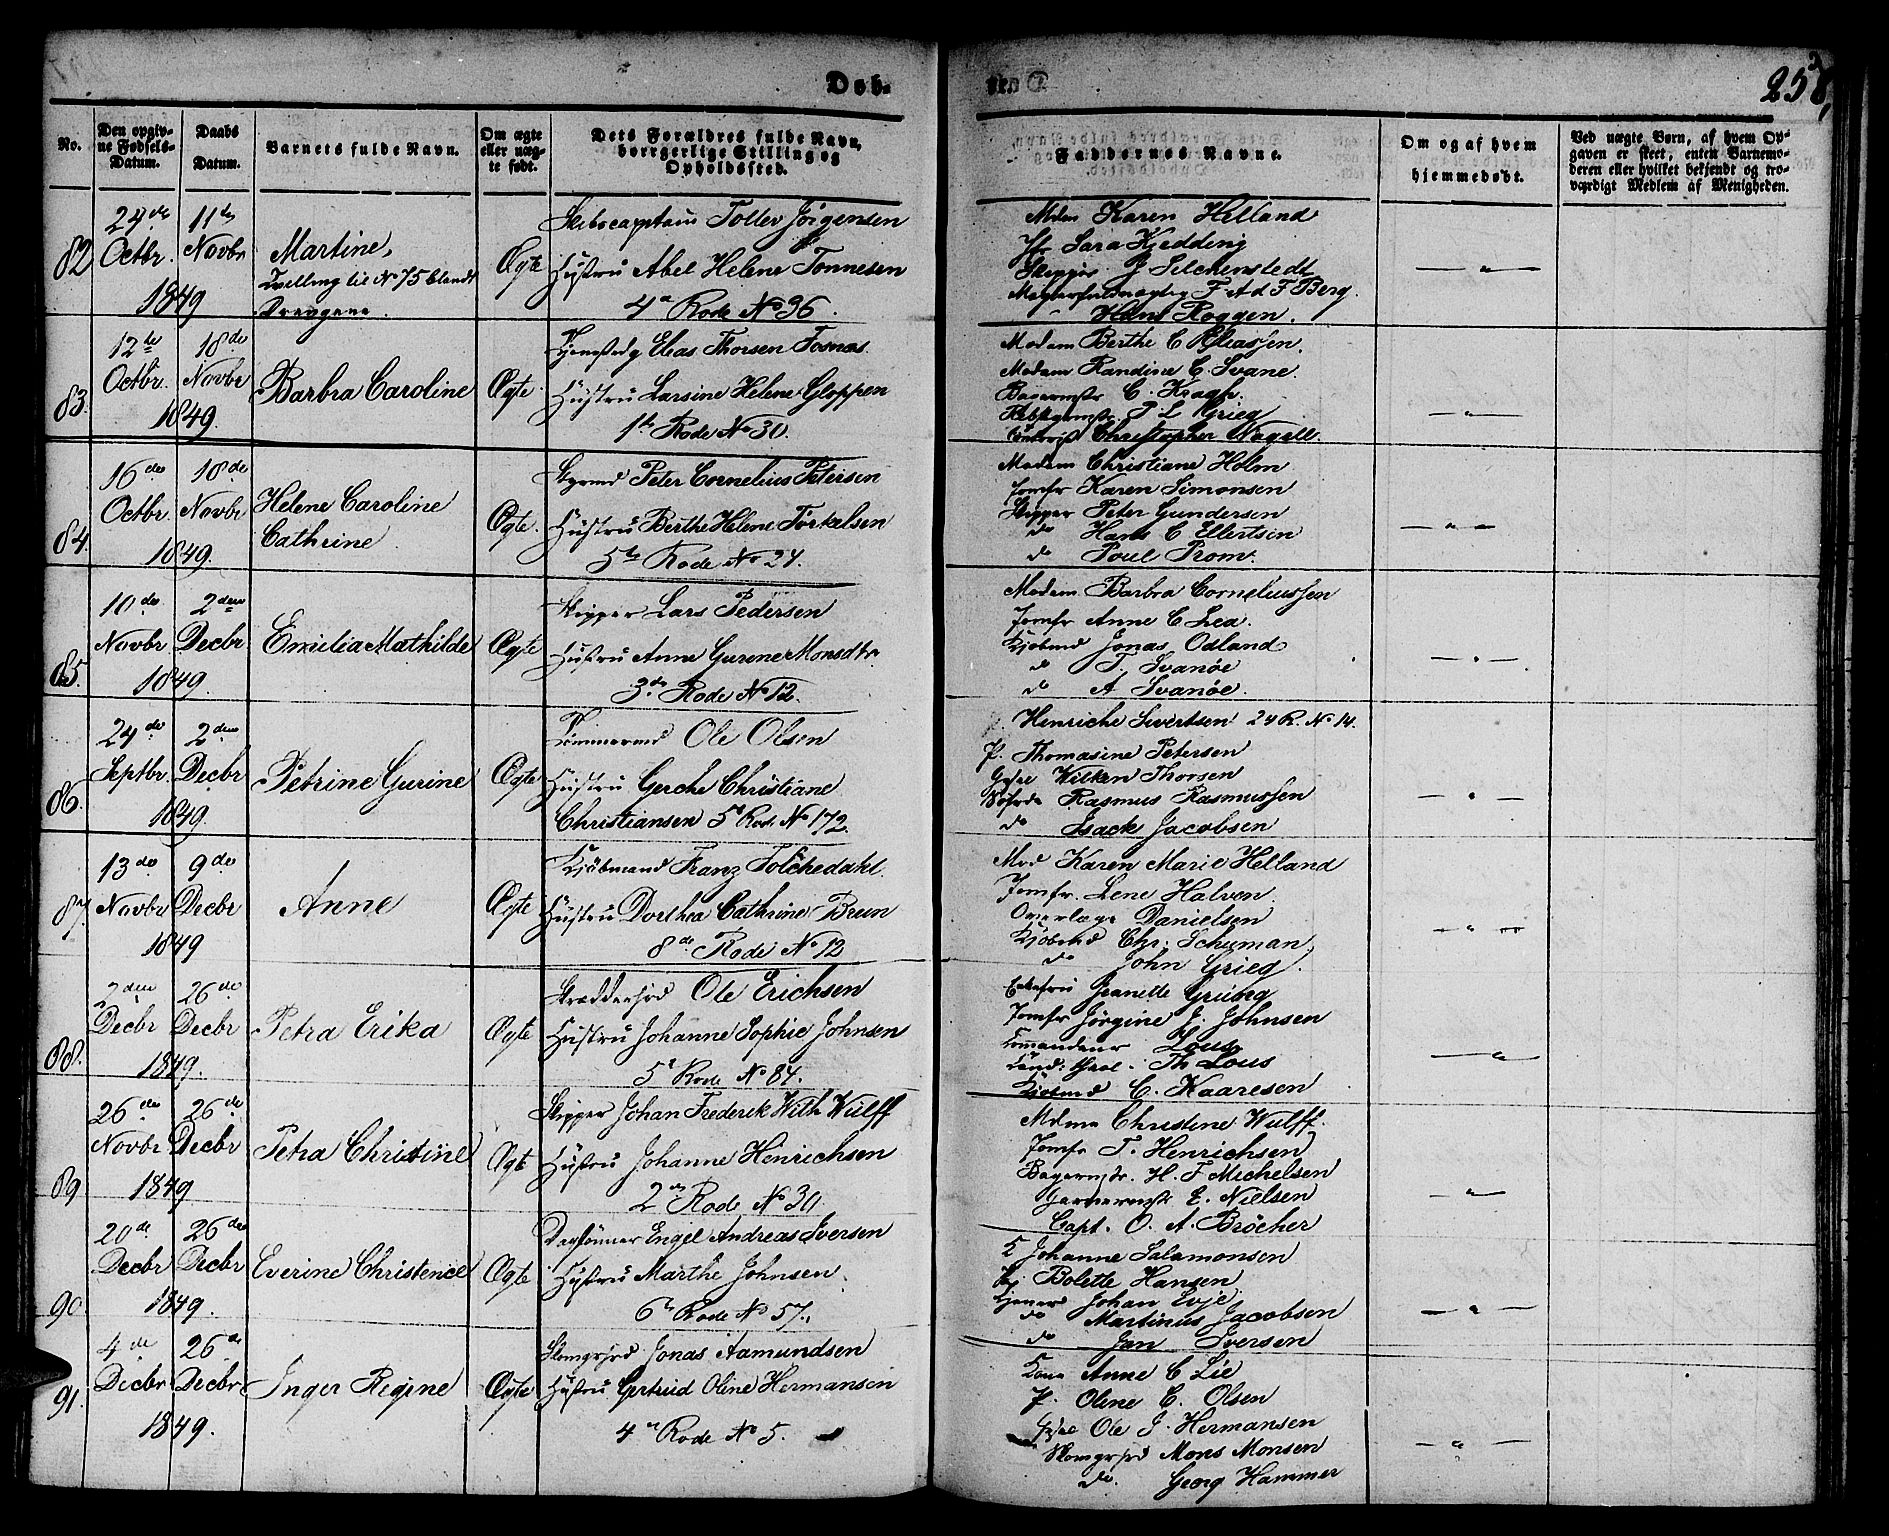 Døb-
258
No.
Den opgiv-
ne Fødsels-
Datum.
Daabs
Datum.
Barnets fulde Navn.
Om ægte
eller uæg-
te født.
Dets Forældres fulde Navn,
borrgerlige Stilling og
Opholdssted.
Faddernes Navne.
Om og af hvem
hjemmedøbt.
Ved uægte Børn, af hvem Op-
gaven er skeet, enten Barnemo-
deren eller hvilket bekjendt og tro-
værdigt Medlem af Menigheden.
82
24de Octbr. 11te Novbr
1849
Martine,
Tvelling til No 75 blandt
Drengene.
Ægte
Skibscapitain Toller Jørgensen
Hustru Abel Helene Tonnesen
4e Rode No 96.
Mdm Karen Helland
Jfr Sara Kjedding
Skipper J Silchenstedt
F. A d F Berg.
Hans Roggen.
83.
12te Octbr. 18de Novbr
1849.
Barbra Caroline
Ægte.
Elias Thorsen Fosnæs.
Hustru Larsine Helene Gloppen
1te Rode No 30.
Madam Berthe C Eliassen.
Madam Randine C. Svane.
Bagermstr C. Kragh.
P L Grieg
Christopher Nagell.
84.
16de Octbr. 18de Novbr
1849.
Helene Caroline
Cathrine
Ægte.
Styrmd Peter Cornelius Petersen
Hustru Berthe Helene Torkelsen
5te Rode No 24.
Madam Christiane Holm
Jomfr Karen Simonsen
Skipper Peter Gundersen
do Hans C Ellertsen
do Poul Prom.
85.
10de Novbr 2den Decbr
1849.
Emilia Mathilde
Ægte
Skipper Lars Pedersen
Hustru Anne Gurene Monsdtr.
3de Rode No 12.
Madam Barbra Corneliussen
Jomfr Anne C Lea.
Kjøbmd Jonas Odland
do T. Svanøe
do A Svanøe.
86.
24de Septbr. 2den Decbr
1849.
Petrine Gurine
Ægte
Tømmermd Ole Olsen
Hustru Gerche Christiane
Christiansen 5e Rod. No 172.
Henriche Sivertsen 24 R. No 14.
P. Thomasine Petersen
Wilken Thorsen
Rasmus Rasmussen
do Isack Jacobsen
87.
13de Novbr 9de Decbr
1849
Anne
Ægte
Kjøbmand Franz Tolchedahl.
Hustru Dorthea Cathrine Brun
8de Rode No 12
Mad Karen Marie Helland
Jomfr. Lene Halven.
Overlæge Danielsen
Kjøbmd Chr. Schuman,
do John Grieg.
88.
2den Decbr 26de Decbr
1849.
Petra Erika
Ægte
Skræddersvd Ole Erichsen
Hustru Johanne Sophie Johnsen
5e Rode No 84.
Enkefru Jeanette Grung
Jomfr Jørgine J. Johnsen
Commandeur Lous
Cand: theol. Th Lous
Kjøbmd C. Kaaresen
89
26de Novbr 26de Decbr
1849
Petra Christine
Ægte
Skipper Johan Frederik Wilh Wulff
Hustru Johanne Henrichsen
2den Rode No 30.
Mdme Christine Wulff.
Jomfr T. Henrichsen
Bagermstr. H. F Michelsen
Garvermstr E. Nielsen
Capt. O. A. Bröcher
90.
20de Decbr 26de Decbr
1849.
Everine Christence
Ægte
Engel Andreas Iversen
Hustru Marthe Johnsen.
6te Rode No 57.
K Johanne Salamonsen
Bolette Hansen
Johan Evje.
do Martinus Jacobsen
do Jan Iversen
91.
4de Decbr 26de Decbr.
1849.
Inger Regine
Ægte
Jonas Aamundsen
Hustru Gertrud Oline Hermansen
4e Rode No 5.
Kone Anne C Lie
P. Olene C. Olsen
Ole J. Hermansen
Mons Monsen
do. Georg Hammer